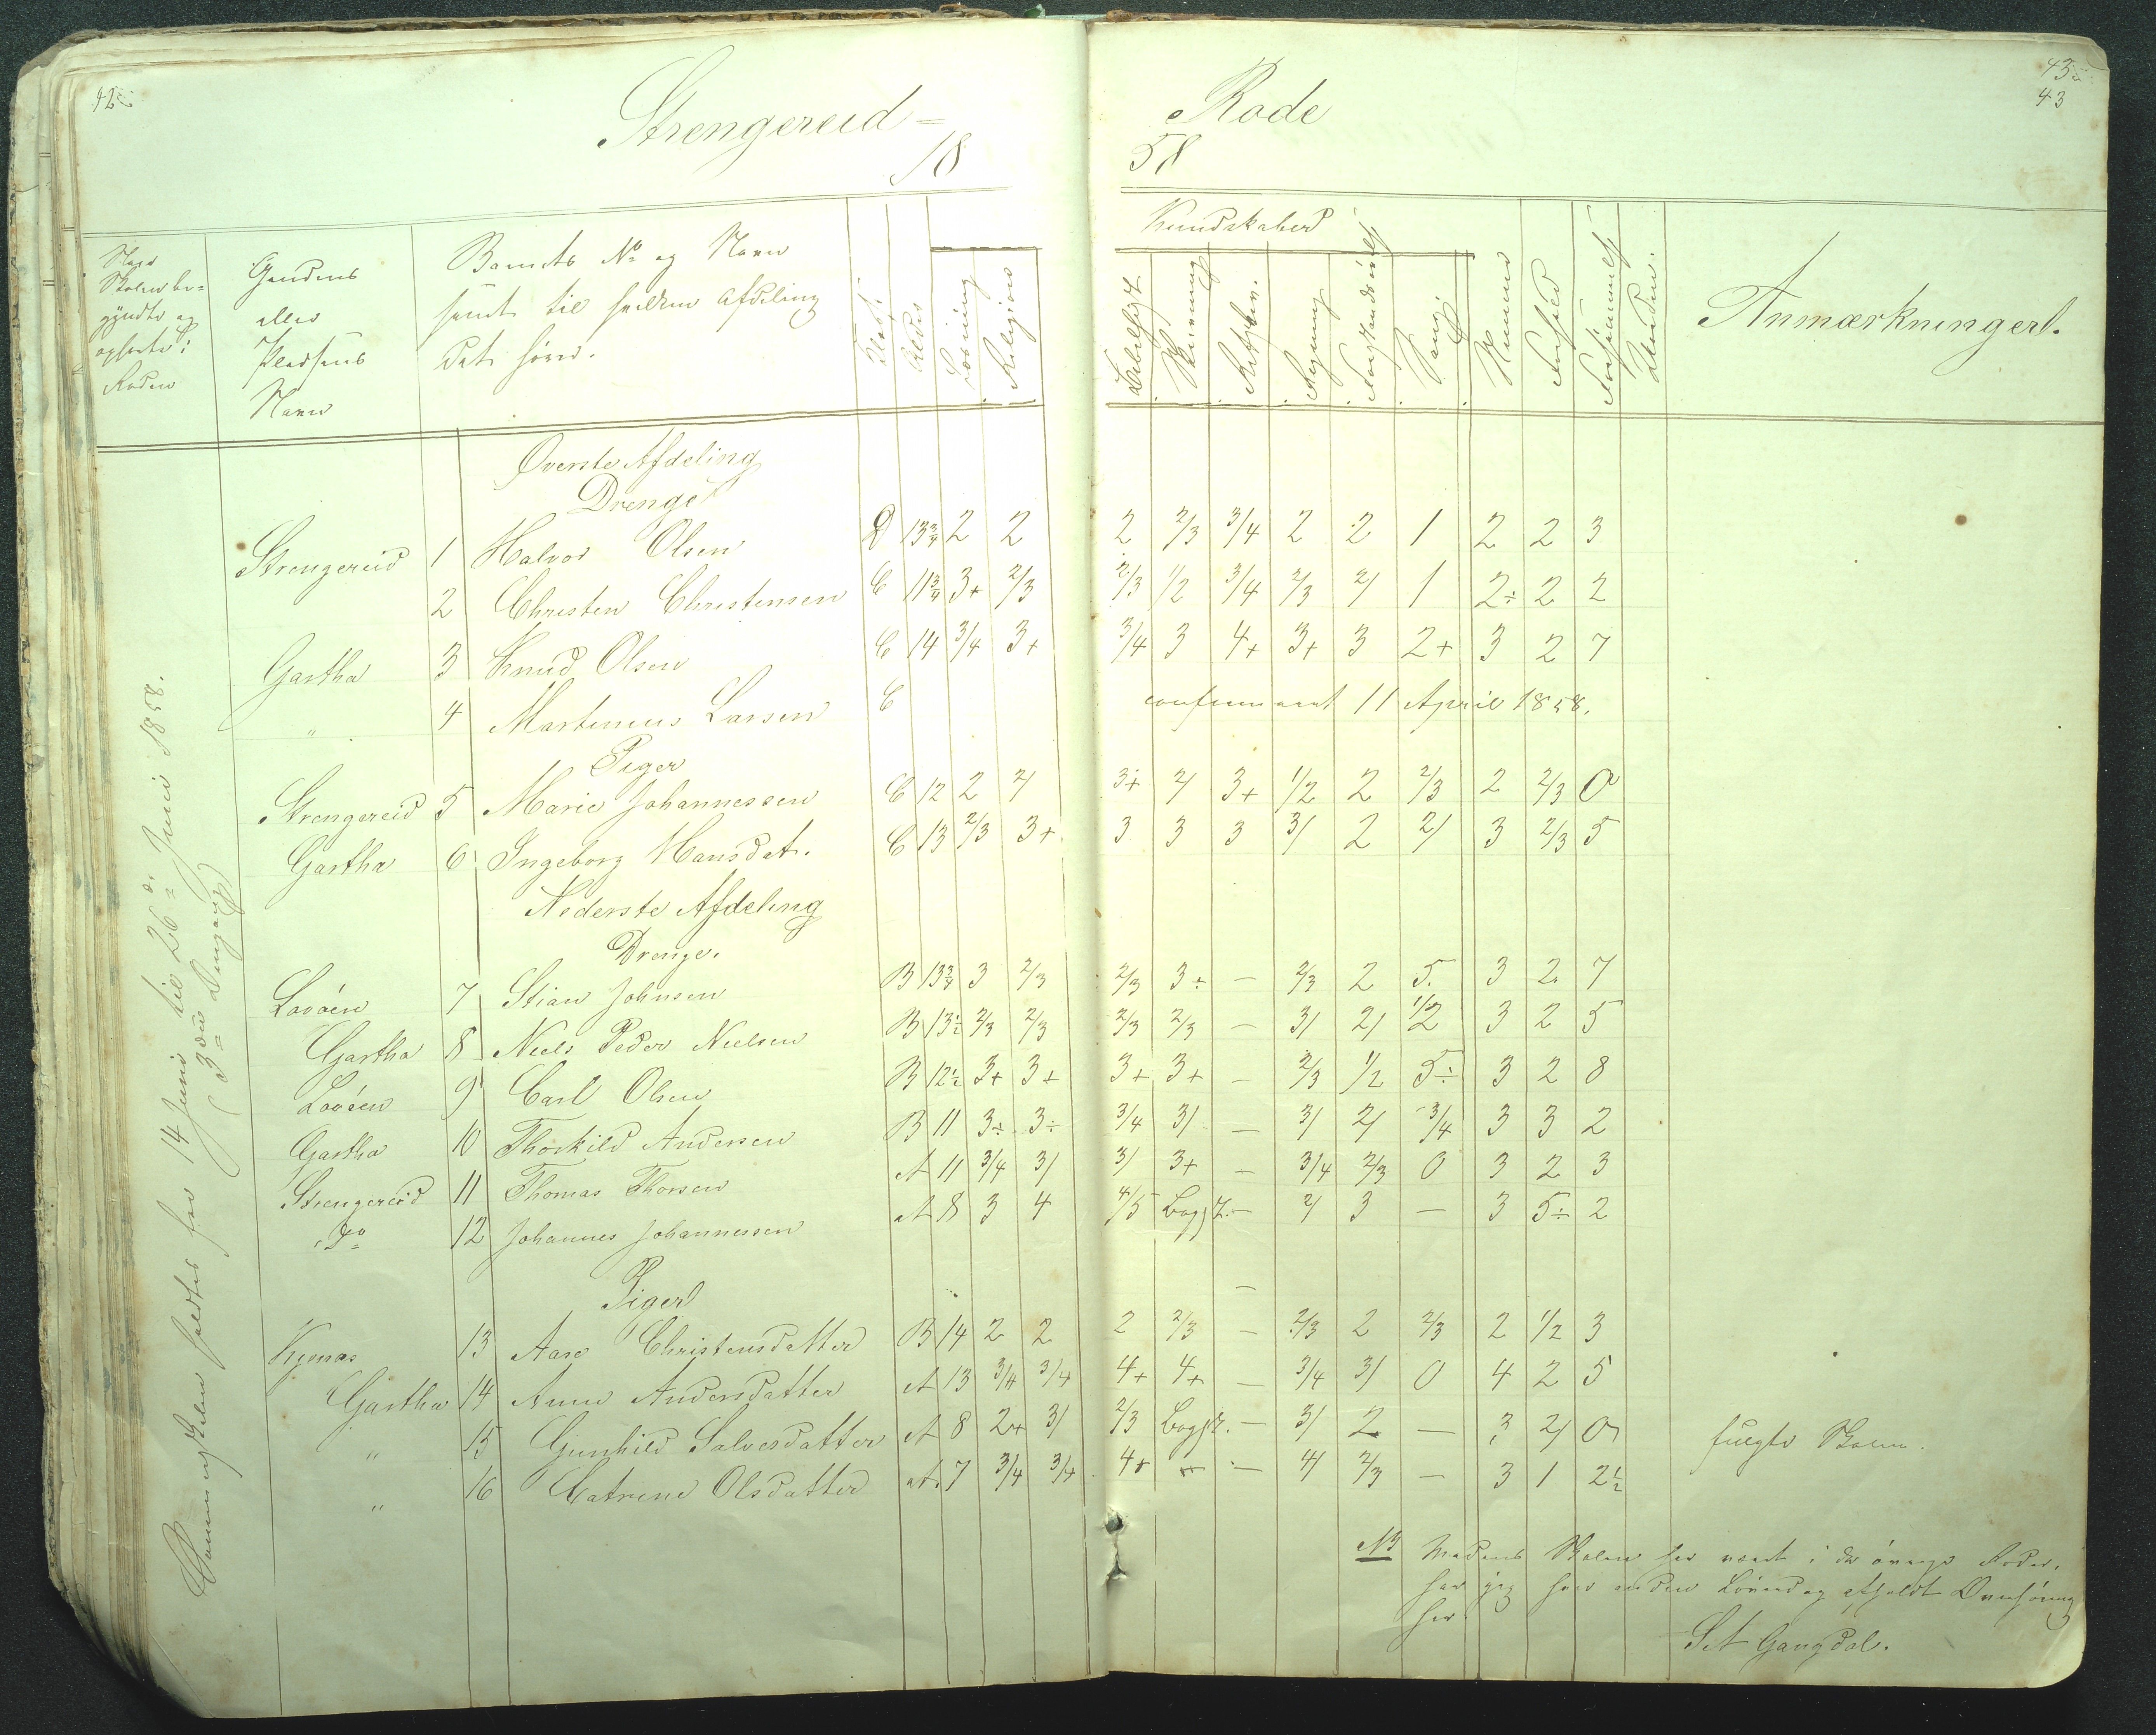 42
43
43
Strengereid= Rode
18 58
Naar Skolen be=
gyndte og
ophørte i
Roden
Gaardens
eller
Pladsens
Navn
Barnets No og Navn
samt til hvilken Afdeling
det hører.
Klasse
Alder
Kundskaber
Læsning
Religion
Bibelhist.
Skrivning
Retskr.
Regning
Forstandsøvelse
Sang
Nemme
Forhold
Forsømmelse
Anmærkninger.
Skolen holdtes fra 14 Juni til 26de Juni 1858.
Øverste Afdeling
Drenge
Strengereid 1 Halvor Olsen D 13¾ 2 2 2 2/3 3/4 2 2 1 2 2 3
2 Christen Christensen C 11¾ 3+ 2/3 2/3 1/2 3/4 2/3 2/ 1 2÷ 2 2
Gartha 3 Knud Olsen C 14 3/4 3+ 3/4 3 4+ 3+ 3 2+ 3 2 7
" 4 Martinius Larsen C confirmeret 11 April 1858.
Piger
Strengereid 5 Marie Johannessen C 12 2 2/ 3+ 2/ 3+ 1/2 2 2/3 2 2/3 0
Gartha 6 Ingeborg Hansdat. C 13 2/3 3+ 3 3 3 3/ 2 2/ 3 2/3 5
Nederste Afdeling
Drenge.
Lovøen 7 Stian Johnsen B 13¾ 3 2/3 2/3 3÷ — 2/3 2 5. 3 2 7
Gartha 8 Niels Peder Nielsen B 13½ 2/3 2/3 2/3 2/3 — 3/ 2/ 1/2 3 2 5
Lovøen 9 Carl Olsen B 12½ 3+ 3+ 3+ 3+ — 2/3 1/2 5÷ 3 2 8
Gartha 10 Thorkild Andersen B 11 3÷ 3÷ 3/4 3/ — 3/ 2/ 3/4 3 3 2
Strengereid 11 Thomas Thorsen A 11 3/4 3/ 3/ 3+ — 3/4 2/3 0 3 2 3
do 12 Johannes Johannessen A 8 3 4 4/5 Bogst. — 2/ 3 — 3 5÷ 2
Piger
—
13 Aase Christensdatter B 14 2 2 2 2/3 — 2/3 2 2/3 2 1/2 3
Gartha 14 Anne Andersdatter A 13 3/4 3/4 4+ 4+ — 3/4 3/ 0 4 2 5
" 15 Gunhild Salvesdatter A 8 2+ 3/ 2/3 Bogst. — 3/ 2 — 3 2/ 0 Skolen.
" 16 Catrine Olsdatter A 7 3/4 3/4 4+ — 4/ 2/3 — 3 1 2½
NB Medens Skolen har været i de øvrige Roder,
har jeg hver anden Løverdag afholdt Overhøring
her